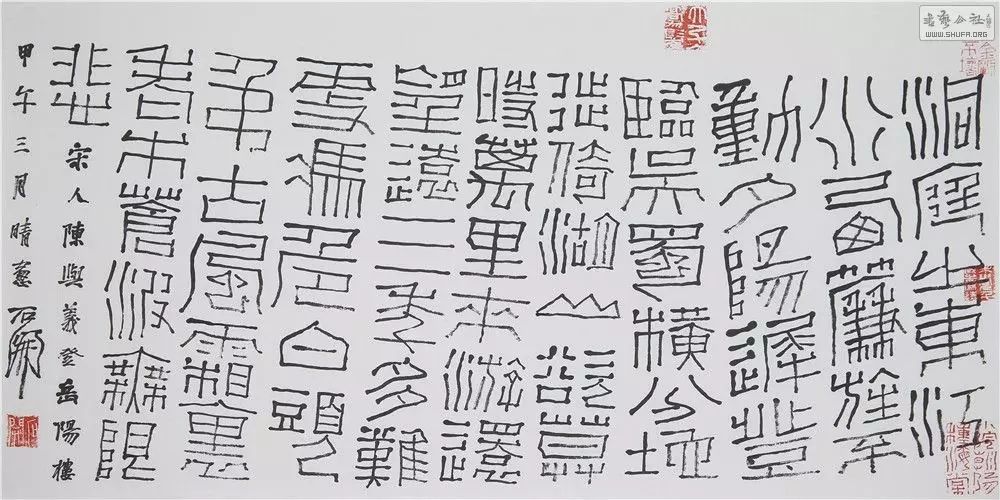 洞庭之東江
水西簾旌不
動夕陽遲登
臨吳蜀橫分地
徙倚湖山欲莫
時萬里來游還
望遠三年多難
更憑危白頭
弔古風霜裏
老木蒼波無限
悲
宋人陳與義登岳陽樓
甲午三月晴窗石開
書藝公社
WWW.SHUFA.ORG